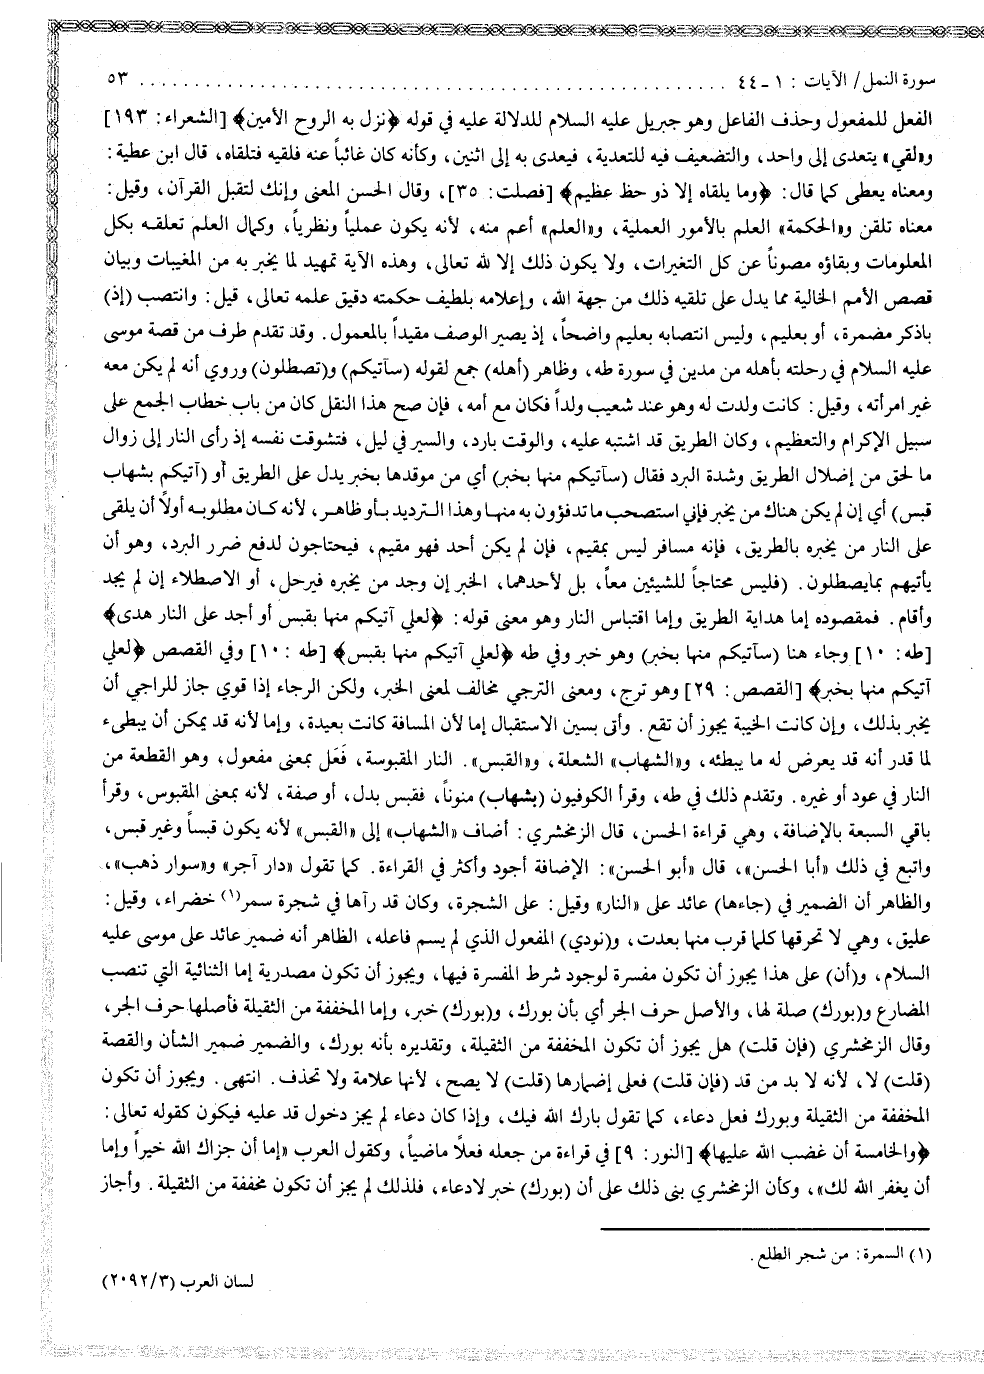 سورة النمل/ الآيات : ١ـ٤٤ ............................................................ ٥٣
الفعل للمفعول وحذف الفاعل وهو جبريل عليه السلام للدلالة عليه في قوله ﴿نزل به الروح الأمين﴾ [الشعراء: ١٩٣]
و«لقي» يتعدى إلى واحد، والتضعيف فيه للتعدية، فيعدى به إلى اثنين، وكأنه كان غائباً عنه فلقيه فتلقاه، قال ابن عطية:
ومعناه يعطى كما قال: ﴿وما يلقاه إلا ذو حظ عظيم﴾ [فصلت: ٣٥]، وقال الحسن المعنى وإنك لتقبل القرآن، وقيل:
معناه تلقن و«الحكمة» العلم بالأمور العملية، و«العلم» أعم منه، لأنه يكون عملياً ونظرياً، وكمال العلم تعلقه بكل
المعلومات وبقاؤه مصوناً عن كل التغيرات، ولا يكون ذلك إلا لله تعالى، وهذه الآية تمهيد لما يخبر به من المغيبات وبيان
قصص الأمم الخالية مما يدل على تلقيه ذلك من جهة الله، وإعلامه بلطيف حكمته دقيق علمه تعالى، قيل: وانتصب (إذ)
باذكر مضمرة، أو بعليم، وليس انتصابه بعليم واضحاً، إذ يصير الوصف مقيداً بالمعمول. وقد تقدم طرف من قصة موسى
عليه السلام في رحلته بأهله من مدين في سورة طه، وظاهر (أهله) جمع لقوله (سآتيكم) و(تصطلون) وروي أنه لم يكن معه
غير امرأته، وقيل: كانت ولدت له وهو عند شعيب ولداً فكان مع أمه، فإن صح هذا النقل كان من باب خطاب الجمع على
سبيل الإكرام والتعظيم، وكان الطريق قد اشتبه عليه، والوقت بارد، والسير في ليل، فتشوقت نفسه إذ رأى النار إلى زوال
ما لحق من إضلال الطريق وشدة البرد فقال (سآتيكم منها بخبر) أي من موقدها بخبر يدل على الطريق أو (آتيكم بشهاب
قبس) أي إن لم يكن هناك من يخبر فإني استصحب ما تدفؤون به منها وهذا الترديد بأو ظاهر، لأنه كان مطلوبه أولاً أن يلقى
على النار من يخبره بالطريق، فإنه مسافر ليس بمقيم، فإن لم يكن أحد فهو مقيم، فيحتاجون لدفع ضرر البرد، وهو أن
يأتيهم بمايصطلون. (فليس محتاجاً للشيئين معاً، بل لأحدهما، الخبر إن وجد من يخبره فيرحل، أو الاصطلاء إن لم يجد
وأقام. فمقصوده إما هداية الطريق وإما اقتباس النار وهو معنى قوله: ﴿لعلي آتيكم منها بقبس أو أجد على النار هدى﴾
[طه: ١٠] وجاء هنا (سآتيكم منها بخبر) وهو خبر وفي طه ﴿لعلي آتيكم منها بقبس﴾ [طه: ١٠] وفي القصص ﴿لعلي
آتيكم منها بخبر﴾ [القصص: ٢٩] وهو ترج، ومعنى الترجي مخالف لمعنى الخبر، ولكن الرجاء إذا قوي جاز للراجي أن
يخبر بذلك، وإن كانت الخيبة يجوز أن تقع. وأتى بسين الاستقبال إما لأن المسافة كانت بعيدة، وإما لأنه قد يمكن أن يبطىء
لما قدر أنه قد يعرض له ما يبطئه، و«الشهاب» الشعلة، و«القبس». النار المقبوسة، فَعَل بمعنى مفعول، وهو القطعة من
النار في عود أو غيره. وتقدم ذلك في طه، وقرأ الكوفيون (بشهاب) منوناً، فقبس بدل، أو صفة، لأنه بمعنى المقبوس، وقرأ
باقي السبعة بالإضافة، وهي قراءة الحسن، قال الزمخشري: أضاف «الشهاب» إلى «القبس» لأنه يكون قبساً وغير قبس،
واتبع في ذلك «أبا الحسن»، قال «أبو الحسن»: الإضافة أجود وأكثر في القراءة. كما تقول «دار آجر» و«سوار ذهب»،
والظاهر أن الضمير في (جاءها) عائد على «النار» وقيل: على الشجرة، وكان قد رآها في شجرة سمر(١) خضراء، وقيل:
عليق، وهي لا تحرقها كلما قرب منها بعدت، و(نودي) المفعول الذي لم يسم فاعله، الظاهر أنه ضمير عائد على موسى عليه
السلام، و(أن) على هذا يجوز أن تكون مفسرة لوجود شرط المفسرة فيها، ويجوز أن تكون مصدرية إما الثنائية التي تنصب
المضارع و(بورك) صلة لها، والأصل حرف الجر أي بأن بورك، و(بورك) خبر، وإما المخففة من الثقيلة فأصلها حرف الجر،
وقال الزمخشري (فإن قلت) هل يجوز أن تكون المخففة من الثقيلة، وتقديره بأنه بورك، والضمير ضمير الشأن والقصة
(قلت) لا، لأنه لا بد من قد (فإن قلت) فعلى إضمارها (قلت) لا يصح، لأنها علامة ولا تحذف. انتهى. ويجوز أن تكون
المخففة من الثقيلة وبورك فعل دعاء، كما تقول بارك الله فيك، وإذا كان دعاء لم يجز دخول قد عليه فيكون كقوله تعالى:
﴿والخامسة أن غضب الله عليها﴾ [النور: ٩] في قراءة من جعله فعلاً ماضياً، وكقول العرب «إما أن جزاك الله خيراً وإما
أن يغفر الله لك»، وكأن الزمخشري بنى ذلك على أن (بورك) خبر لادعاء، فلذلك لم يجز أن تكون مخففة من الثقيلة. وأجاز
(١) السمرة: من شجر الطلع.
لسان العرب (٢٠٩٢/٣)